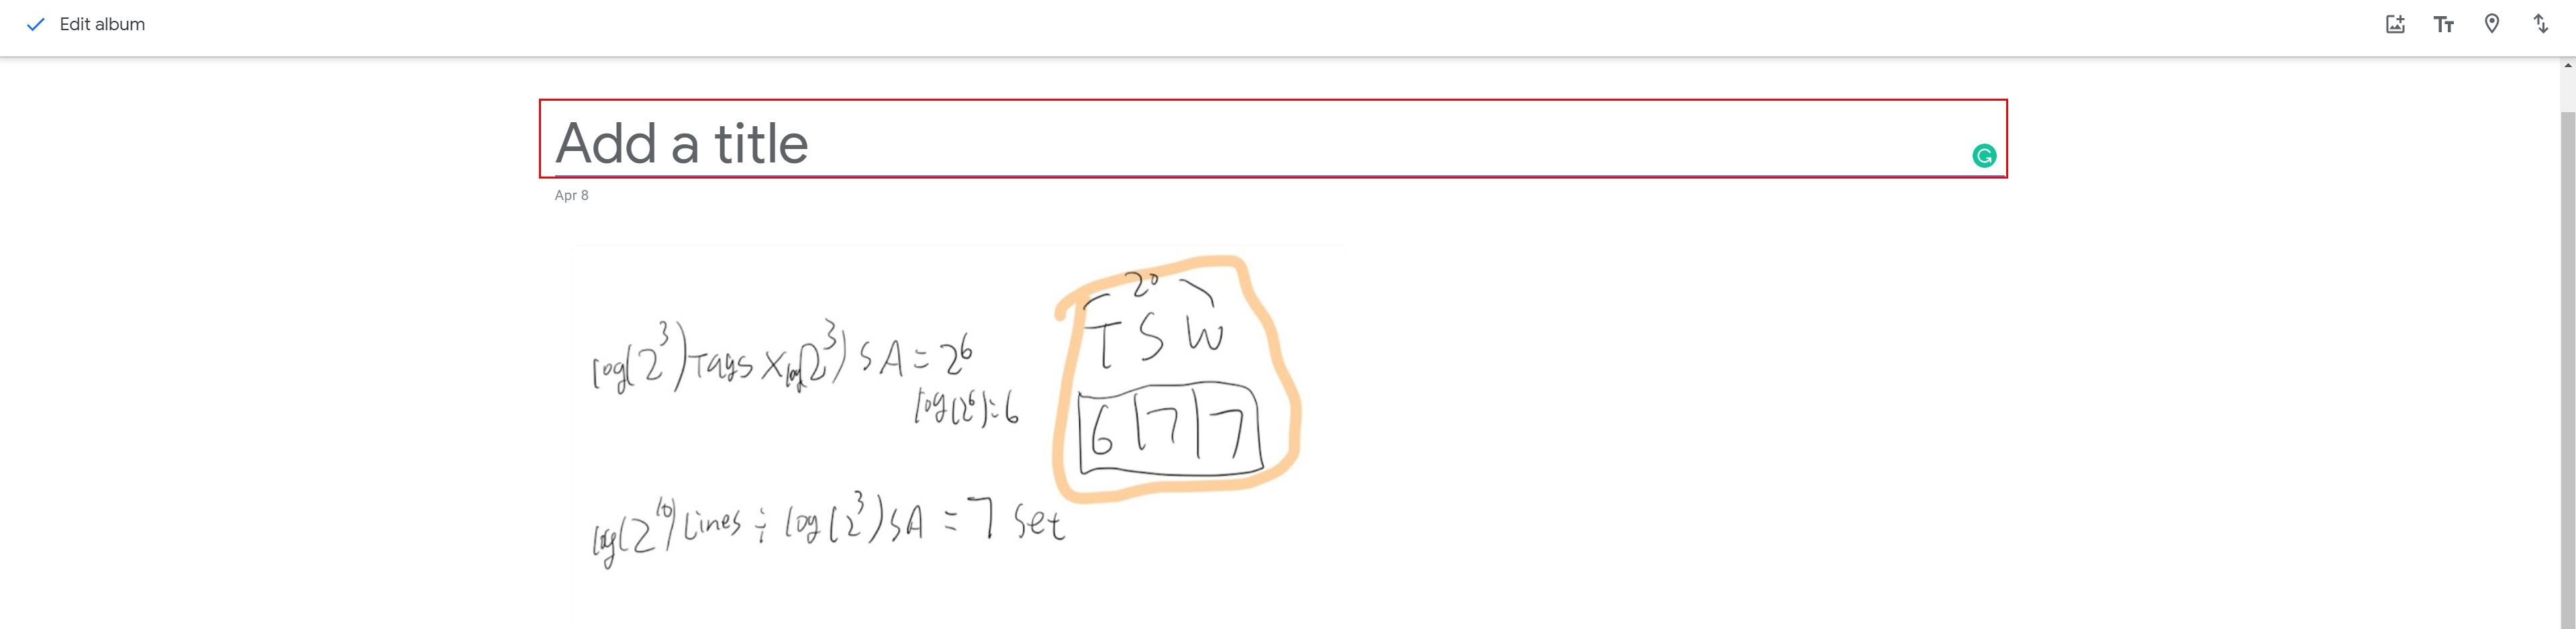 Edit album
Add a title
Apr 8
20
T S W
log(2³)Tags X log(2³) SA = 2⁶
log(2⁶)=6
6 | 7 | 7
log(2¹⁰)Lines ÷ log(2³)SA = 7 Set